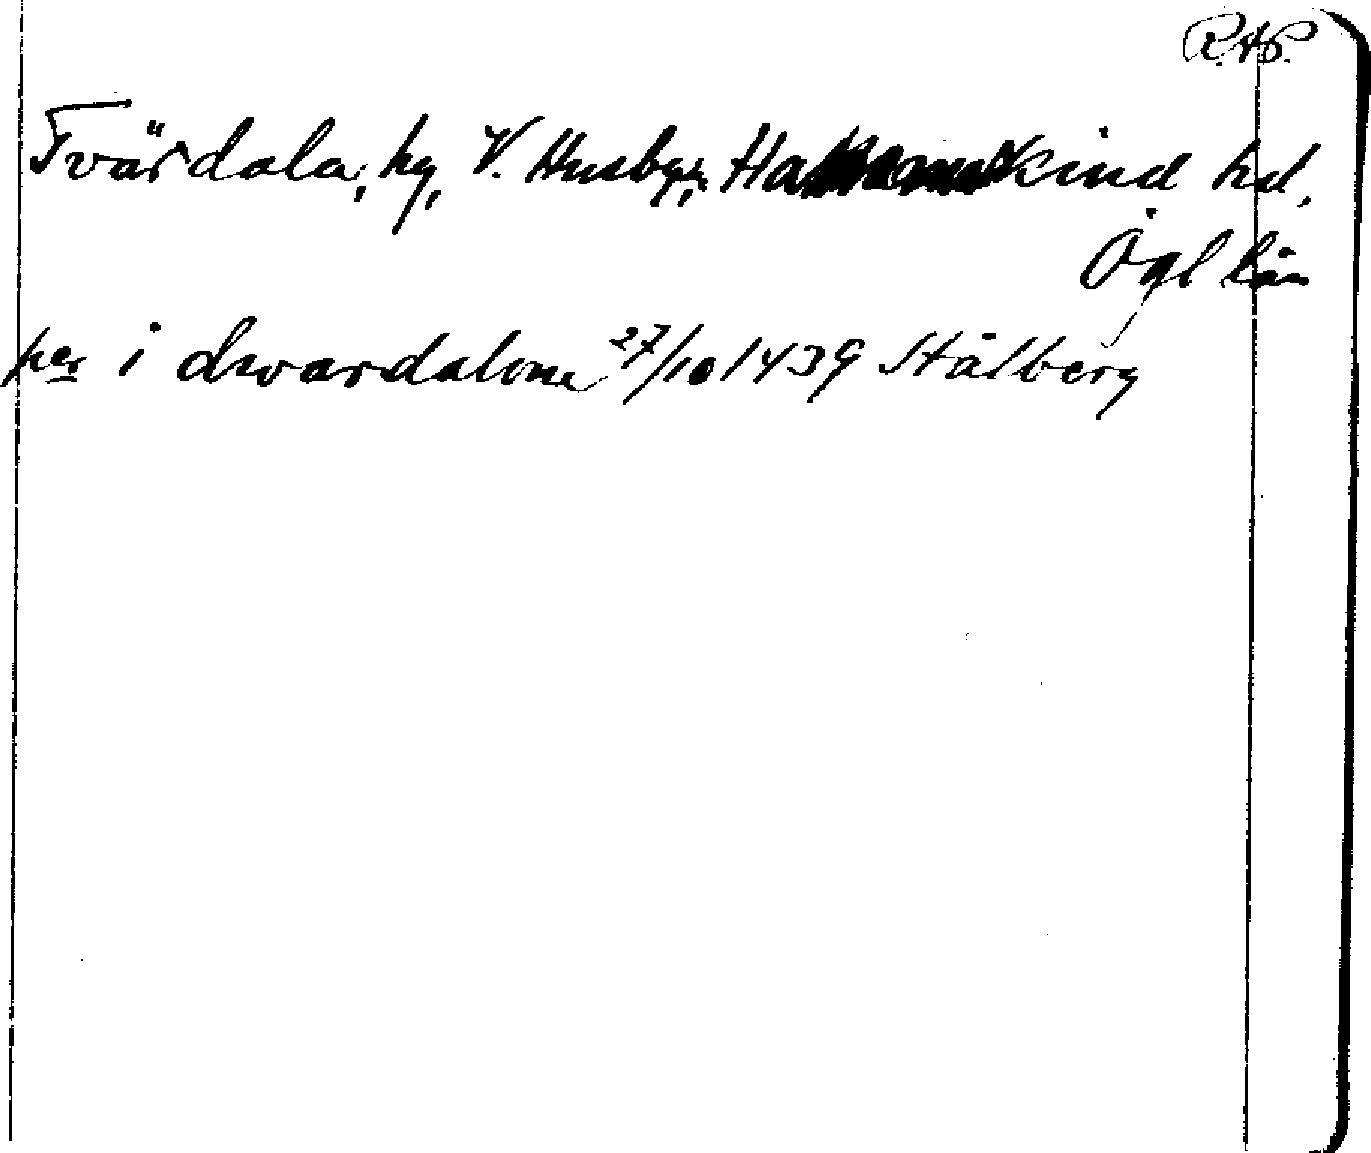 R.A.P.
Tvärdala, hg, V. Husby, Hammarkind hd,
Ögl län
per i dwardalom 27/10 1439 Stålberg